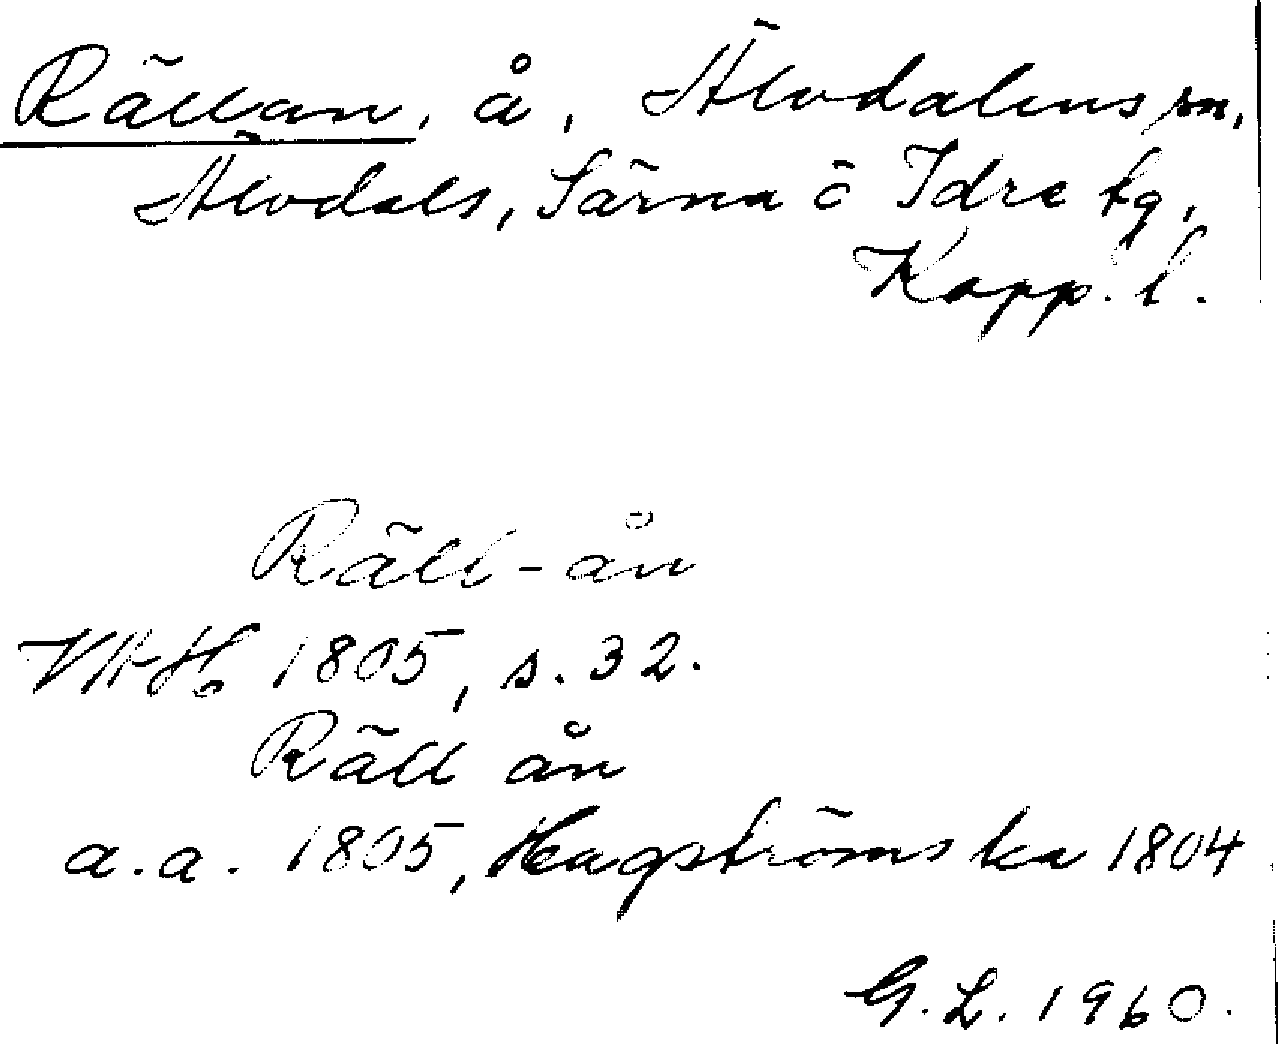 Rällan, å, Älvdalens sn,
Älvdals, Särna o Idre tg,
Kopp. l.
Räll-ån
VAH 1805, s. 32.
Räll ån
a.a. 1805, Hagströms ka 1804
G.L. 1960.